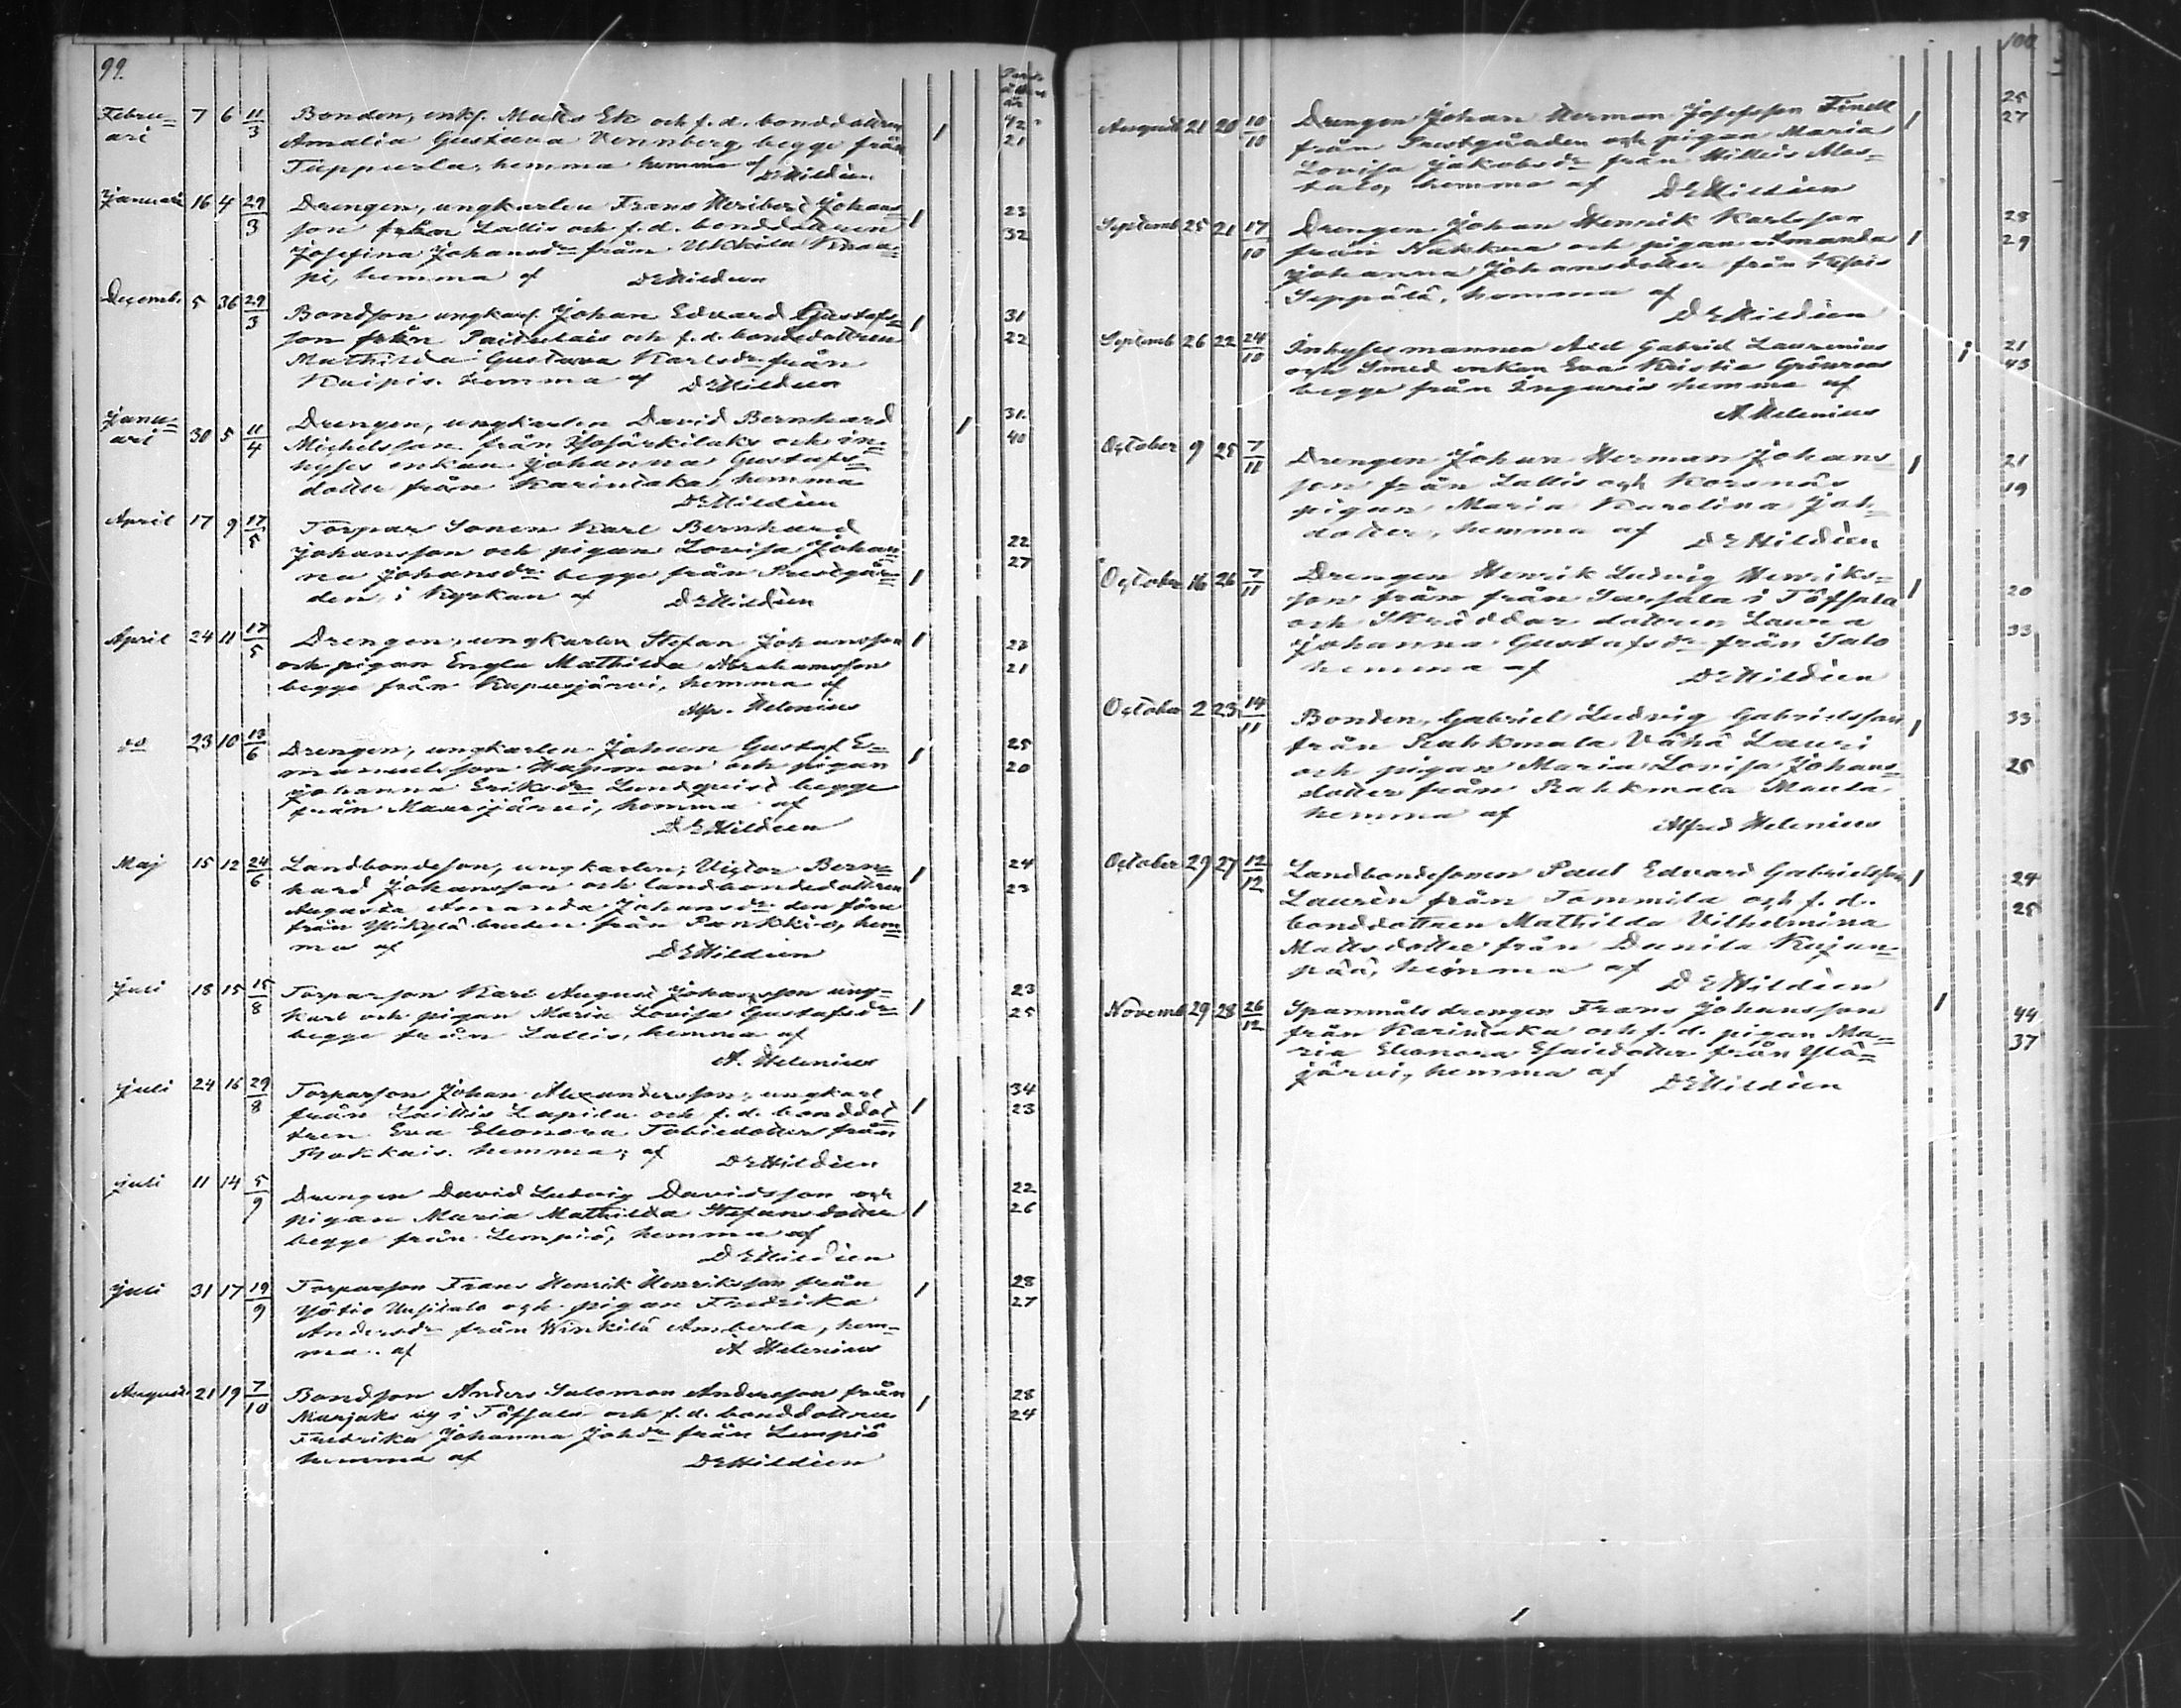 99.
Febru= 7 6 11/3 Bonden, enkl. Matts Ek och f.d. bonddottren 42
ari Amalia Gustava Vennberg begge från 1 21
Tuppurla, hemma hemma af DEHildéen
Januari 16 4 29/3 Drengen, ungkarlen Frans Heribert Johans= 1 23
son från Lallis och f.d. bonddottren 32
Josefina Johansdr från Utskila Knaa=
pi, hemma af DEHildéen
Decemb. 5 36 29/3 Bondson ungkarl Johan Edvard Gustafs= 1 31
son från och f.d. bondedottren 22
Mathilda Gustava Karlsdr från
Kaipis hemma af DEHildéen
Janu= 30 5 11/4 Drengen, ungkarlen David Bernhard 1 31.
ari Michelsson från och in= 40
hyses enkan Johanna Gustafs=
dotter från Karintaka, hemma
DEHildéen
April 17 9 17/5 Torpar Sonen Karl Bernhard
Johansson och pigan Lovisa Johan= 22
na Johansdr begge från Prestgår= 1 27
den, i Kyrkan af DEHildéen
April 24 11 17/5 Drengen, ungkarlen Stefan Johansson 1 23
och pigan Engla Mathilda Abrahamsson 21
begge från Kapusjärvi, hemma af
Alfr. Helenius
do 23 10 13/6 Drengen, ungkarlen Johan Gustaf E= 1 25
manuelsson Hapman och pigan 20
Johanna Eriksdr Lundqvist begge
från Maarijärvi, hemma af
DEHildéen
Maj 15 12 24/6 Landbondeson, ungkarlen, Victor Bern= 1 24
hard Johansson och landbondedottren 23
Augusta Amanda Johansdr den förre
från Ylikylä bruden från Pankkio, hem=
ma af DEHildéen
Juli 18 15 15/8 Torparson Karl August Johansson ung= 23
karl och pigan Maria Lovisa Gustafsdr 1 25
begge från Lallis, hemma af
A. Helenius
Juli 24 16 29/8 Torparson Johan Alexandersson, ungkarl 34
från Laittis Lapila och f.d. bonddot= 1 23
tren Eva Eleonora Tobiedotter från
hemma, af DEHildéen
Juli 11 14 5/9 Drengen David Ludvig Davidsson och 22
pigan Maria Mathilda Stefansdotter 1 26
begge från Lempiö, hemma af
DEHildéen
Juli 31 17 19/9 Torparson Frans Henrik Henriksson från 1 28
och pigan Fredrika 27
Andersdr från Winkilä Amberla, hem=
ma af A Helenius
August 21 19 7/10 Bondson Anders Salomon Andersson från 1 28
Marjaks by i Töfsala och f.d. bonddottren 24
Fredrika Johanna Johdr från Lempiö
hemma af DEHildéen
100
August 21 20 10/10 Drengen Johan Herman Josefsson Finell 1 25
från Prestgården och pigan Maria 27
Lovisa Jakobsdr från Hillis Mas=
talo, hemma af DEHildéen
Septemb 25 21 17/10 Drengen Johan Henrik Karlsson 28
från Nakkua och pigan Amanda 1 29
Johanna Johansdotter från
Seppälä, hemma af
DEHildéen
Septemb 26 22 24/10 Inhyses mannen Axel Gabriel Laurenius 1 21
och Smed enkan Eva Kristia Grönroos 43
begge från Inguris hemma af
A. Helenius
October 9 25 7/11 Drengen Johan Herman Johans= 1 21
son från Lallis och Korsnäs 19
pigan Maria Karolina Joh.
dotter, hemma af DEHildéen
October 16 26 7/11 Drengen Henrik Ludvig Henriks=
son från från Sarsala i Töfsala 1 20
och Skräddar dottren Laura
Johanna Gustafsdr från Salo 33
hemma af DEHildéen
October 2 23 14/11 Bonden, Gabriel Ludvig Gabrielsson 1 33
från Rahkmala Vähä Lauri
och pigan Maria Lovisa Johans= 25
dotter från Rahkmala Maula
hemma af Alfred Helenius
October 29 27 12/12 Landbondesonen Paul Edvard Gabrielsson 1 24
Laurén från Tommila och f.d. 25
bonddottren Mathilda Vilhelmina
Mattsdotter från Danila Kujan=
pää, hemma af DEHildéen
Novemb 29 28 26/12 Spanmåls drengen Frans Johansson 1 44
från Karintaka och f.d. pigan Ma= 37
ria Eleonora Esaiedotter från Ylä=
järvi, hemma af DEHildéen